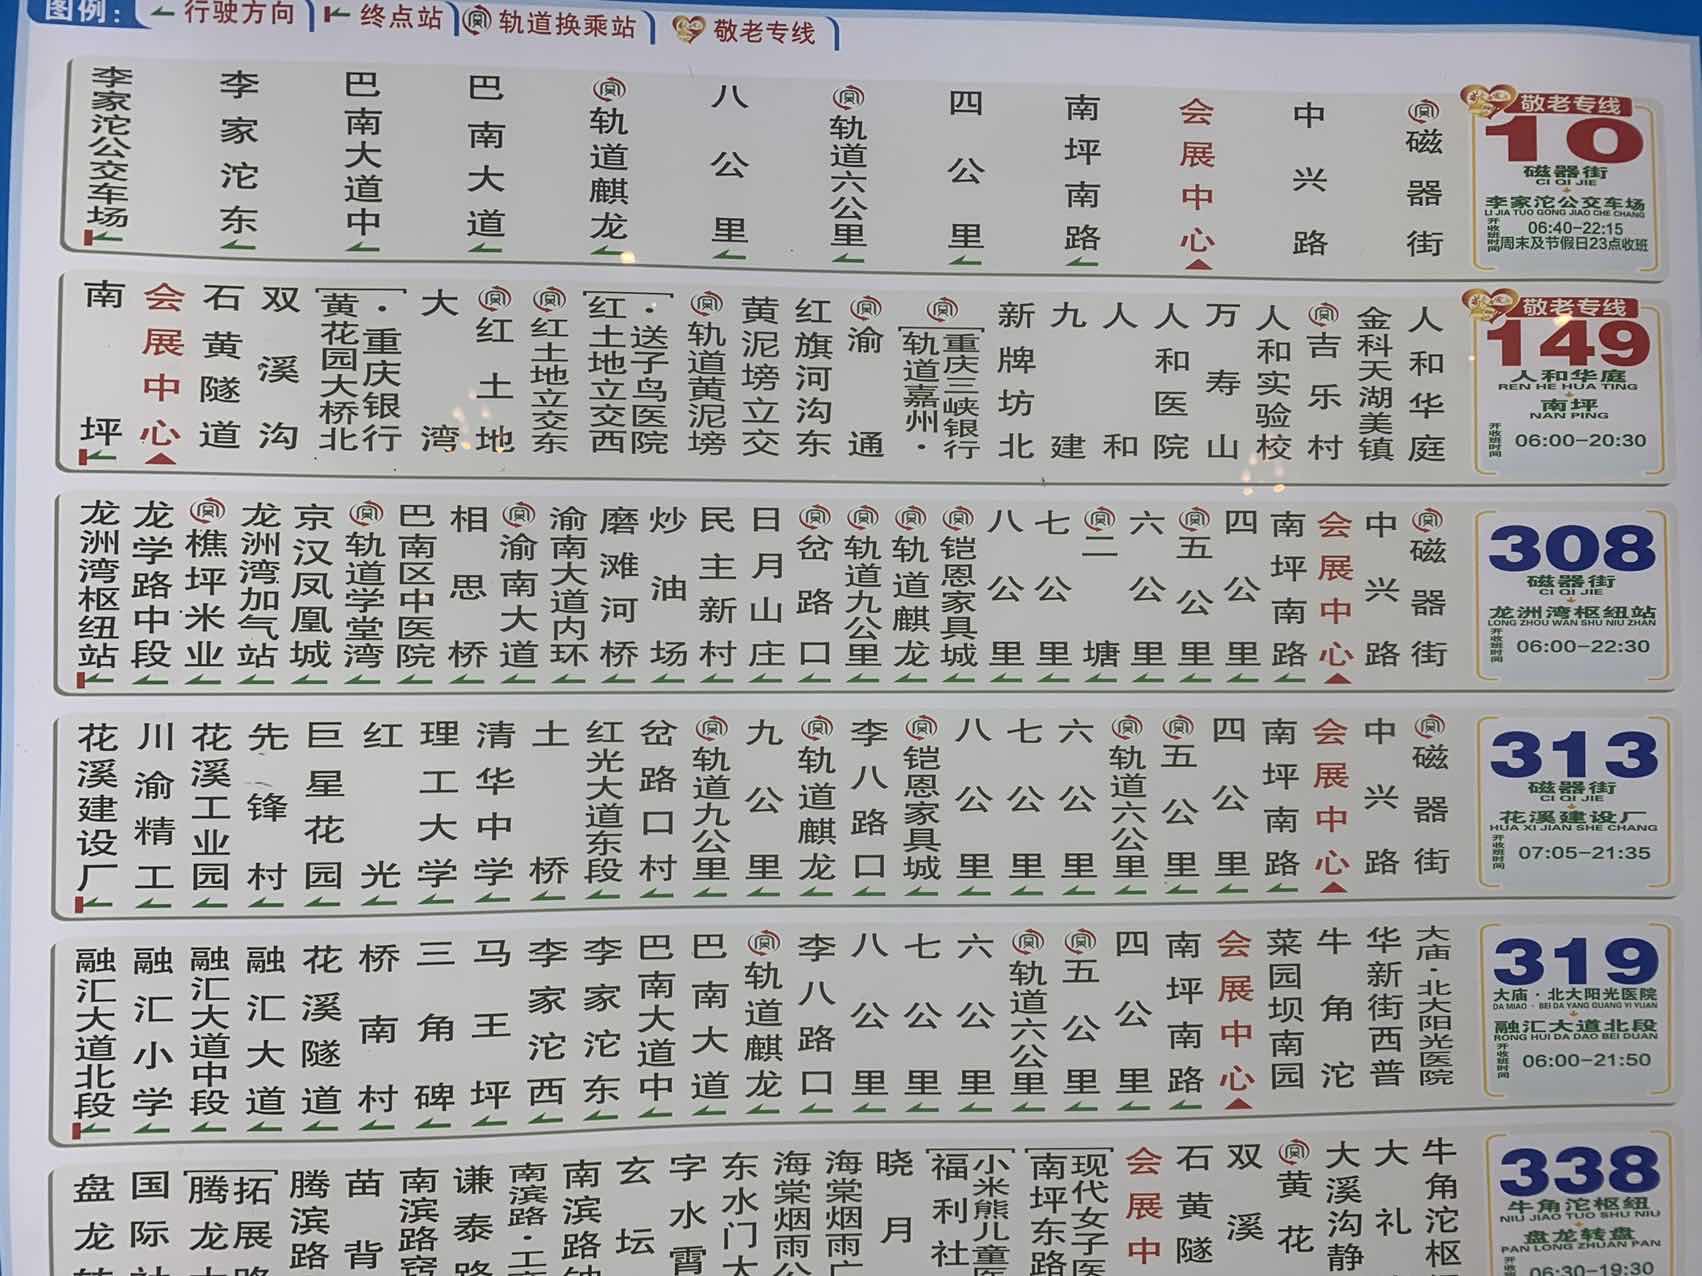 图例:
行驶方向
终点站
轨道换乘站
敬老专线
李家沱公交车场
李家沱东
巴南大道中
巴南大道
轨道麒龙
八公里
轨道六公里
四公里
南坪南路
会展中心
中兴路
磁器街
敬老专线
10
磁器街
CI QI JIE
李家沱公交车场
LI JIA TUO GONG JIAO CHE CHANG
开收班时间
06:40-22:15
周末及节假日23点收班
南坪
会展中心
石黄隧道
双溪沟
黄花园大桥北·重庆银行
大湾
红土地
红土地立交东
红土地立交西·送子鸟医院
轨道黄泥塝
黄泥塝立交
红旗河沟东
渝通
轨道嘉州·重庆三峡银行
新牌坊北
九建
人和
人和医院
万寿山
人和实验校
吉乐村
金科天湖美镇
人和华庭
敬老专线
149
人和华庭
REN HE HUA TING
南坪
NAN PING
开收班时间
06:00-20:30
龙洲湾枢纽站
龙学路中段
樵坪米业
龙洲湾加气站
京汉凤凰城
轨道学堂湾
巴南区中医院
相思桥
渝南大道
渝南大道内环
磨滩河桥
炒油场
民主新村
日月山庄
岔路口
轨道九公里
轨道麒龙
铠恩家具城
八公里
七公里
二塘
六公里
五公里
四公里
南坪南路
会展中心
中兴路
磁器街
308
磁器街
CI QI JIE
龙洲湾枢纽站
LONG ZHOU WAN SHU NIU ZHAN
开收班时间
06:00-22:30
花溪建设厂
川渝精工
花溪工业园
先锋村
巨星花园
红光
理工大学
清华中学
土桥
红光大道东段
岔路口村
轨道九公里
九公里
轨道麒龙
李八路口
铠恩家具城
八公里
七公里
六公里
轨道六公里
五公里
四公里
南坪南路
会展中心
中兴路
磁器街
313
磁器街
CI QI JIE
花溪建设厂
HUA XI JIAN SHE CHANG
开收班时间
07:05-21:35
融汇大道北段
融汇小学
融汇大道中段
融汇大道
花溪隧道
桥南村
三角碑
马王坪
李家沱西
李家沱东
巴南大道中
巴南大道
轨道麒龙
李八路口
八公里
七公里
六公里
轨道六公里
五公里
四公里
南坪南路
会展中心
菜园坝南园
牛角沱
华新街西普
大庙·北大阳光医院
319
大庙·北大阳光医院
DA MIAO · BEI DA YANG GUANG YI YUAN
融汇大道北段
RONG HUI DA DAO BEI DUAN
开收班时间
06:00-21:50
盘龙
国际
腾龙
拓展
腾滨路
苗背
南滨路窍
谦泰
南滨路·工
南滨路钟
玄坛
字水霄
东水门大
海棠烟雨公
海棠烟雨广
晓月
福利社
小米熊儿童医
南坪东路
现代女子医
会展中
石黄隧
双溪
黄花
大溪沟静
大礼
牛角沱枢
338
牛角沱枢纽
NIU JIAO TUO SHU NIU
盘龙转盘
PAN LONG ZHUAN PAN
06:30-19:30